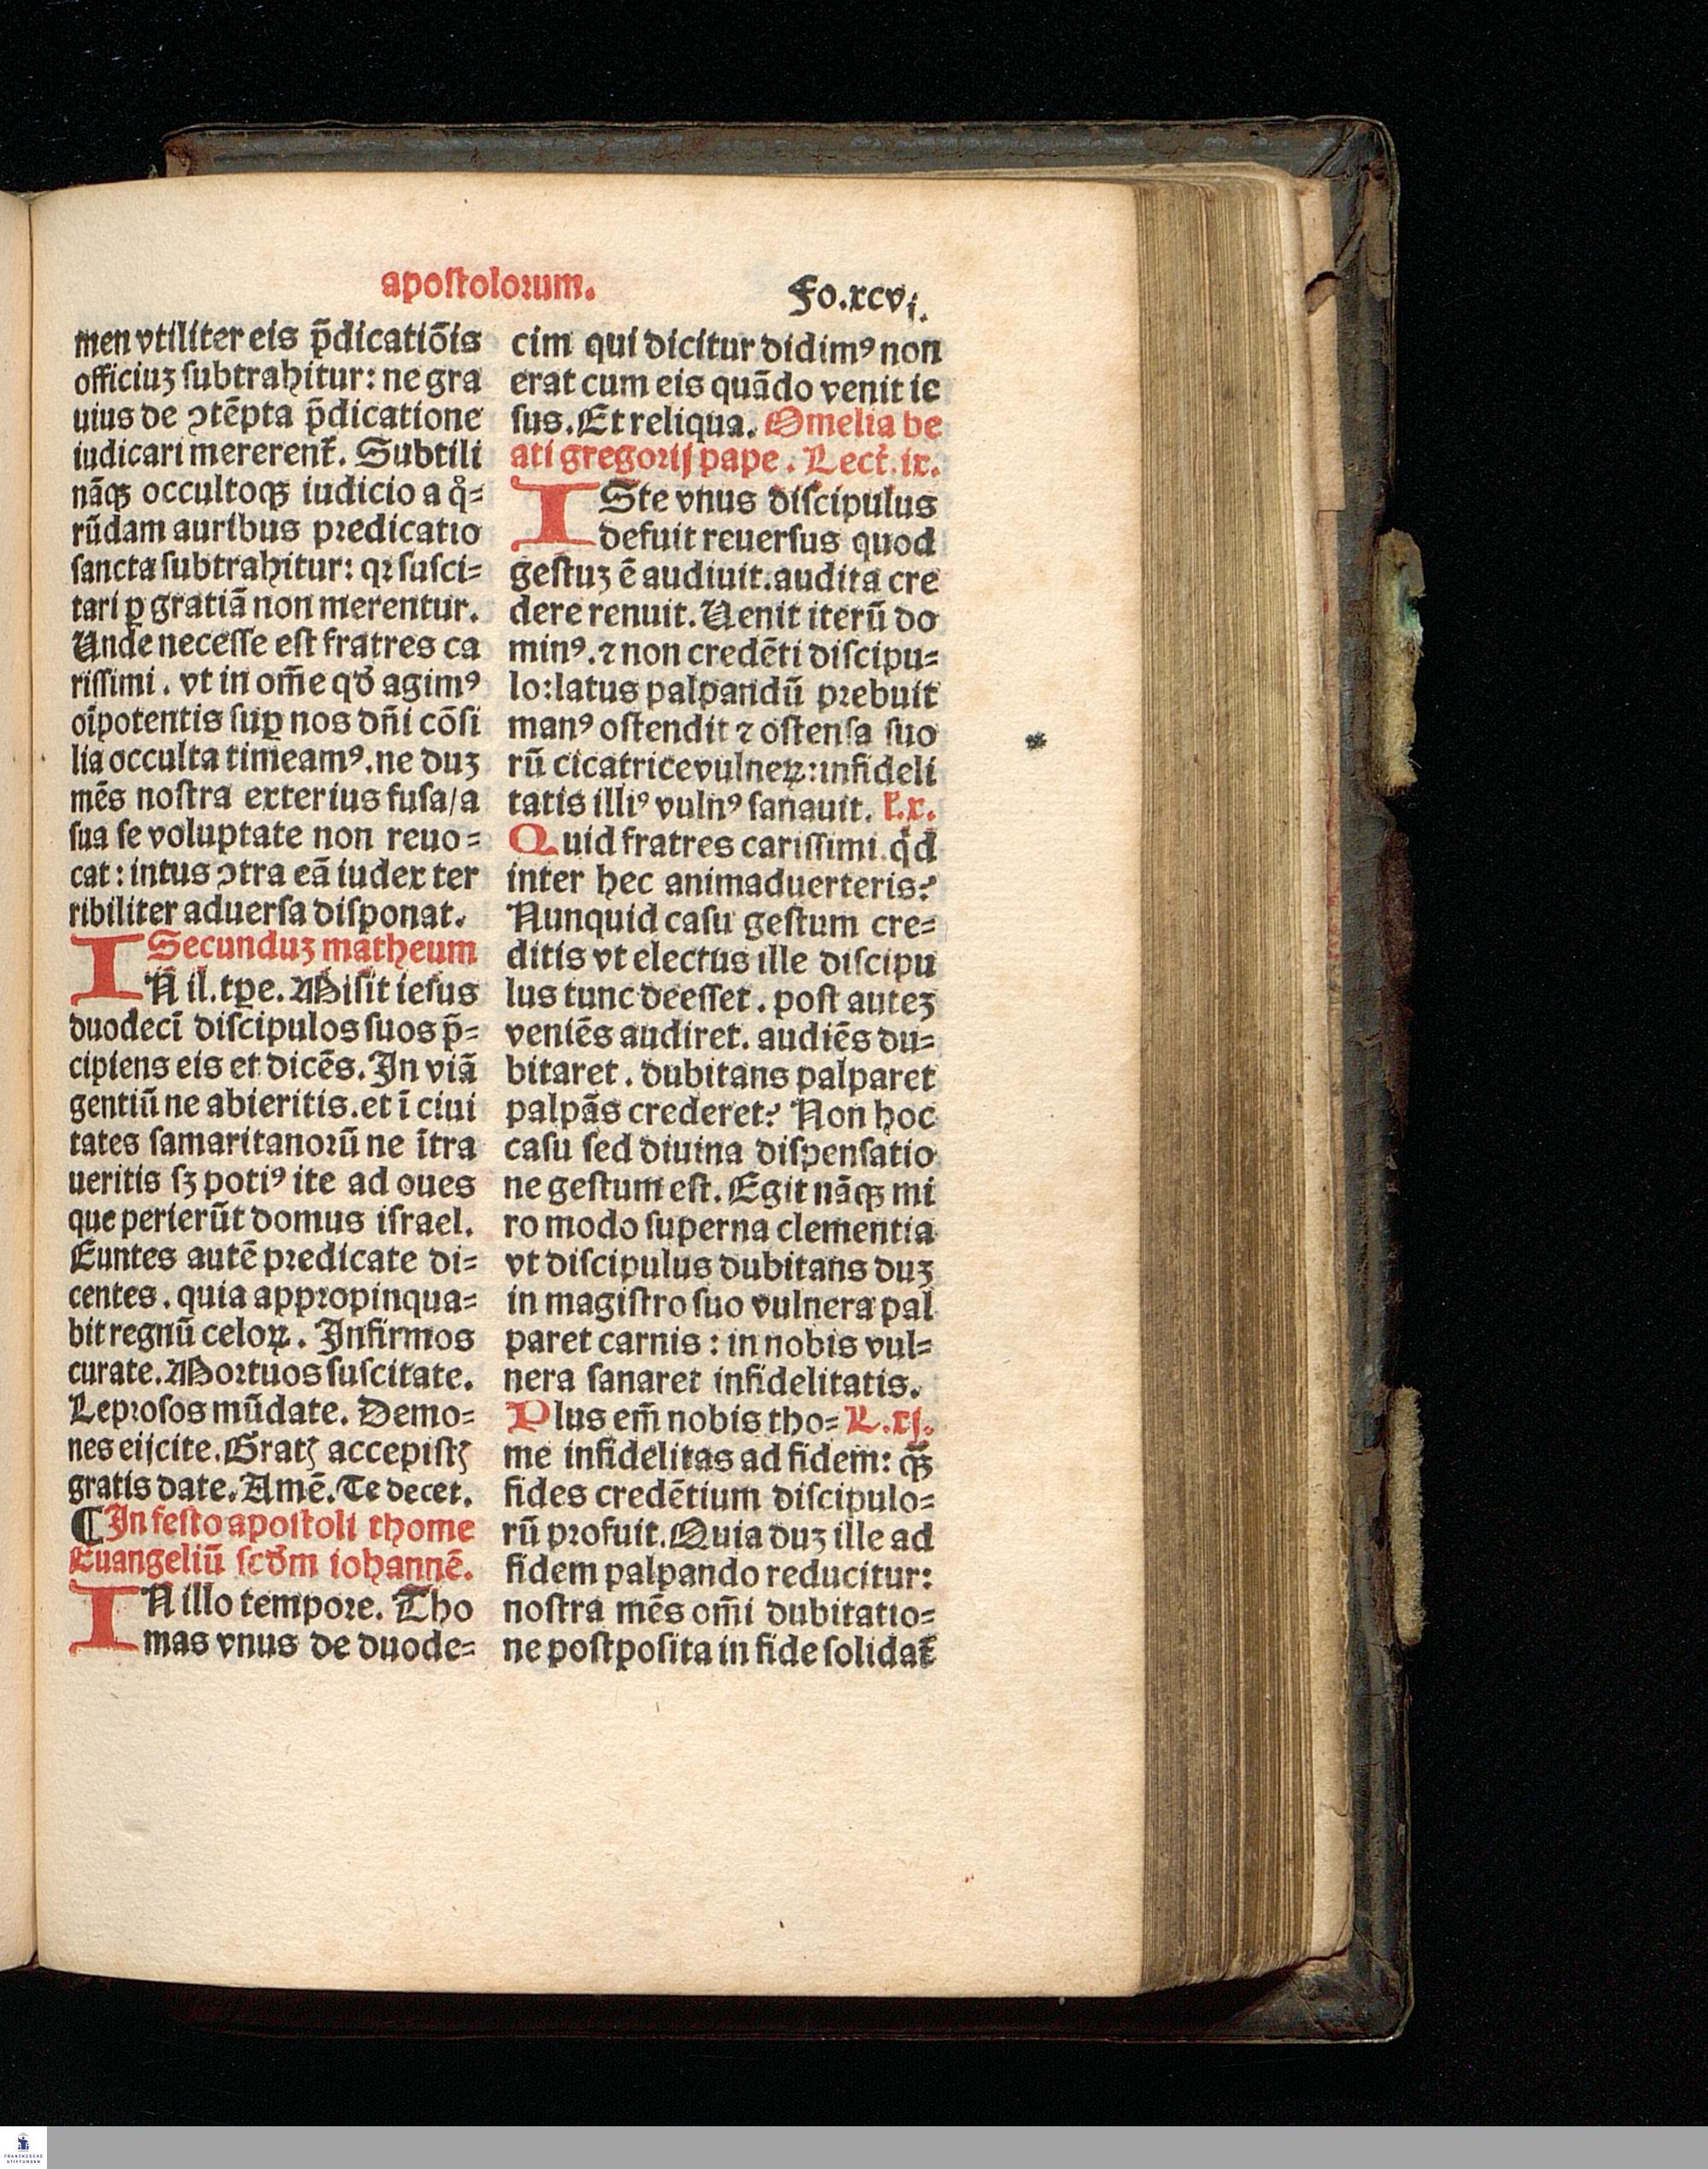 apostolorum.
Fo.xcvj.
men vtiliter eis p̄dicatiōis
officiuȝ subtrahitur: ne gra
uius de ꝯtēpta p̄dicatione
iudicari mererent᷑. Subtili
nāqꝫ occultoqꝫ iudicio a qͦ=
rūdam auribus predicatio
sancta subtrahitur: qꝛ susci=
tari ꝑ gratiā non merentur.
Unde necesse est fratres ca
rissimi. vt in om̄e qđ agimꝰ
oīpotentis suꝑ nos dn̄i cōsi
lia occulta timeamꝰ. ne duȝ
mēs nostra exterius fusa/a
sua se voluptate non reuo=
cat: intus ꝯtra eā iudex ter
ribiliter aduersa disponat.
Secunduȝ matheum
IN il. tꝑe. Misit iesus
duodecī discipulos suos p̄=
cipiens eis et dicēs. In viā
gentiū ne abieritis. et ī ciui
tates samaritanorū ne ītra
ueritis sȝ potiꝰ ite ad oues
que perierūt domus israel.
Euntes autē predicate di=
centes. quia appropinqua=
bit regnū celoꝝ. Infirmos
curate. Mortuos suscitate.
Leprosos mūdate. Demo=
nes eijcite. Gratꝭ accepistꝭ
gratis date. Amē. Te decet.
¶ In festo apostoli thome
Euangeliū scđm iohannē.
IN illo tempore. Tho
mas vnus de duode=
cim qui dicitur didimꝰ non
erat cum eis quādo venit ie
sus. Et reliqua. Omelia be
ati gregorij pape. Lect᷑. ix.
ISte vnus discipulus
defuit reuersus quod
gestuȝ ē audiuit. audita cre
dere renuit. Uenit iterū do
minꝰ. ⁊ non credēti discipu=
lo: latus palpandū prebuit
manꝰ ostendit ⁊ ostensa suo
rū cicatrice vulneꝝ: infideli
tatis illiꝰ vulnꝰ sanauit. ł. x.
Quid fratres carissimi. qͥd
inter hec animaduerteris?
Nunquid casu gestum cre=
ditis vt electus ille discipu
lus tunc deesset. post auteȝ
veniēs audiret. audiēs du=
bitaret. dubitans palparet
palpās crederet? Non hoc
casu sed diuina dispensatio
ne gestum est. Egit nāqꝫ mi
ro modo superna clementia
vt discipulus dubitans duȝ
in magistro suo vulnera pal
paret carnis: in nobis vul=
nera sanaret infidelitatis.
Plus em̄ nobis tho= L. xj.
me infidelitas ad fidem: qꝫ̄
fides credētium discipulo=
rū profuit. Quia duȝ ille ad
fidem palpando reducitur:
nostra mēs om̄i dubitatio=
ne postposita in fide solidat᷑
FRANCKESCHE
STIFTUNGEN